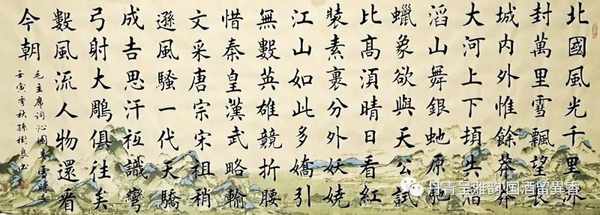 北國風光千里冰
封萬里雪飄望長
城内外惟餘莽莽
大河上下頓失滔
滔山舞銀蛇原馳
蠟象欲與天公試
比髙須晴日看紅
裝素裹分外妖嬈
江山如此多嬌引
無數英雄競折腰
惜秦皇漢武略輸
文采唐宗宋祖稍
遜風騷一代天驕
成吉思汗祗識彎
弓射大雕俱往矣
數風流人物還看
今朝
毛主席詞沁園春雪
壬寅季秋孫樹
丹青呈雅韵国酒留曼香